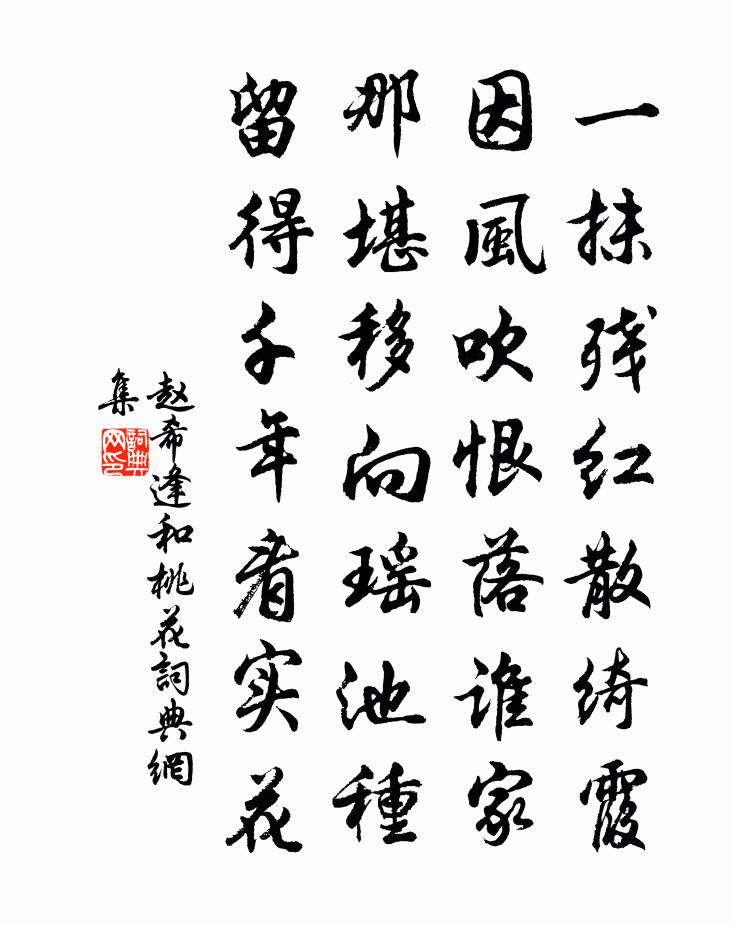 一抹残红散绮霞
因風吹恨落谁家
那堪移向瑶池種
留得千年看实花
赵希逢和桃花詞典網
集
詞典
网印